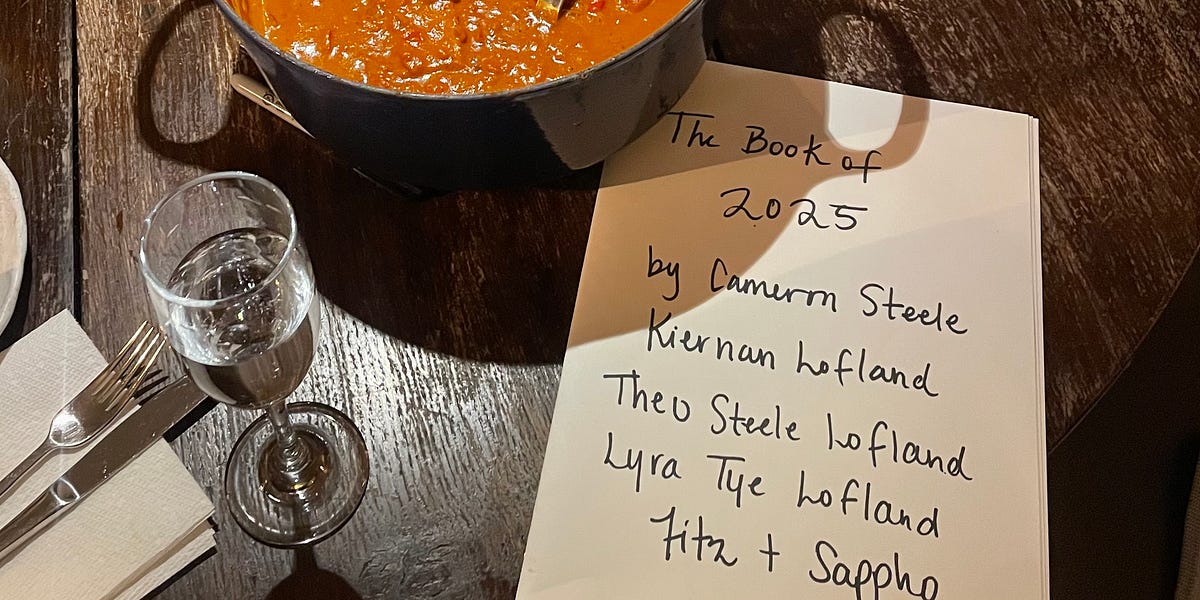 The Book of
2025
by Cameron Steele
Kiernan Lofland
Theo Steele Lofland
Lyra Tye Lofland
Fitz + Sappho